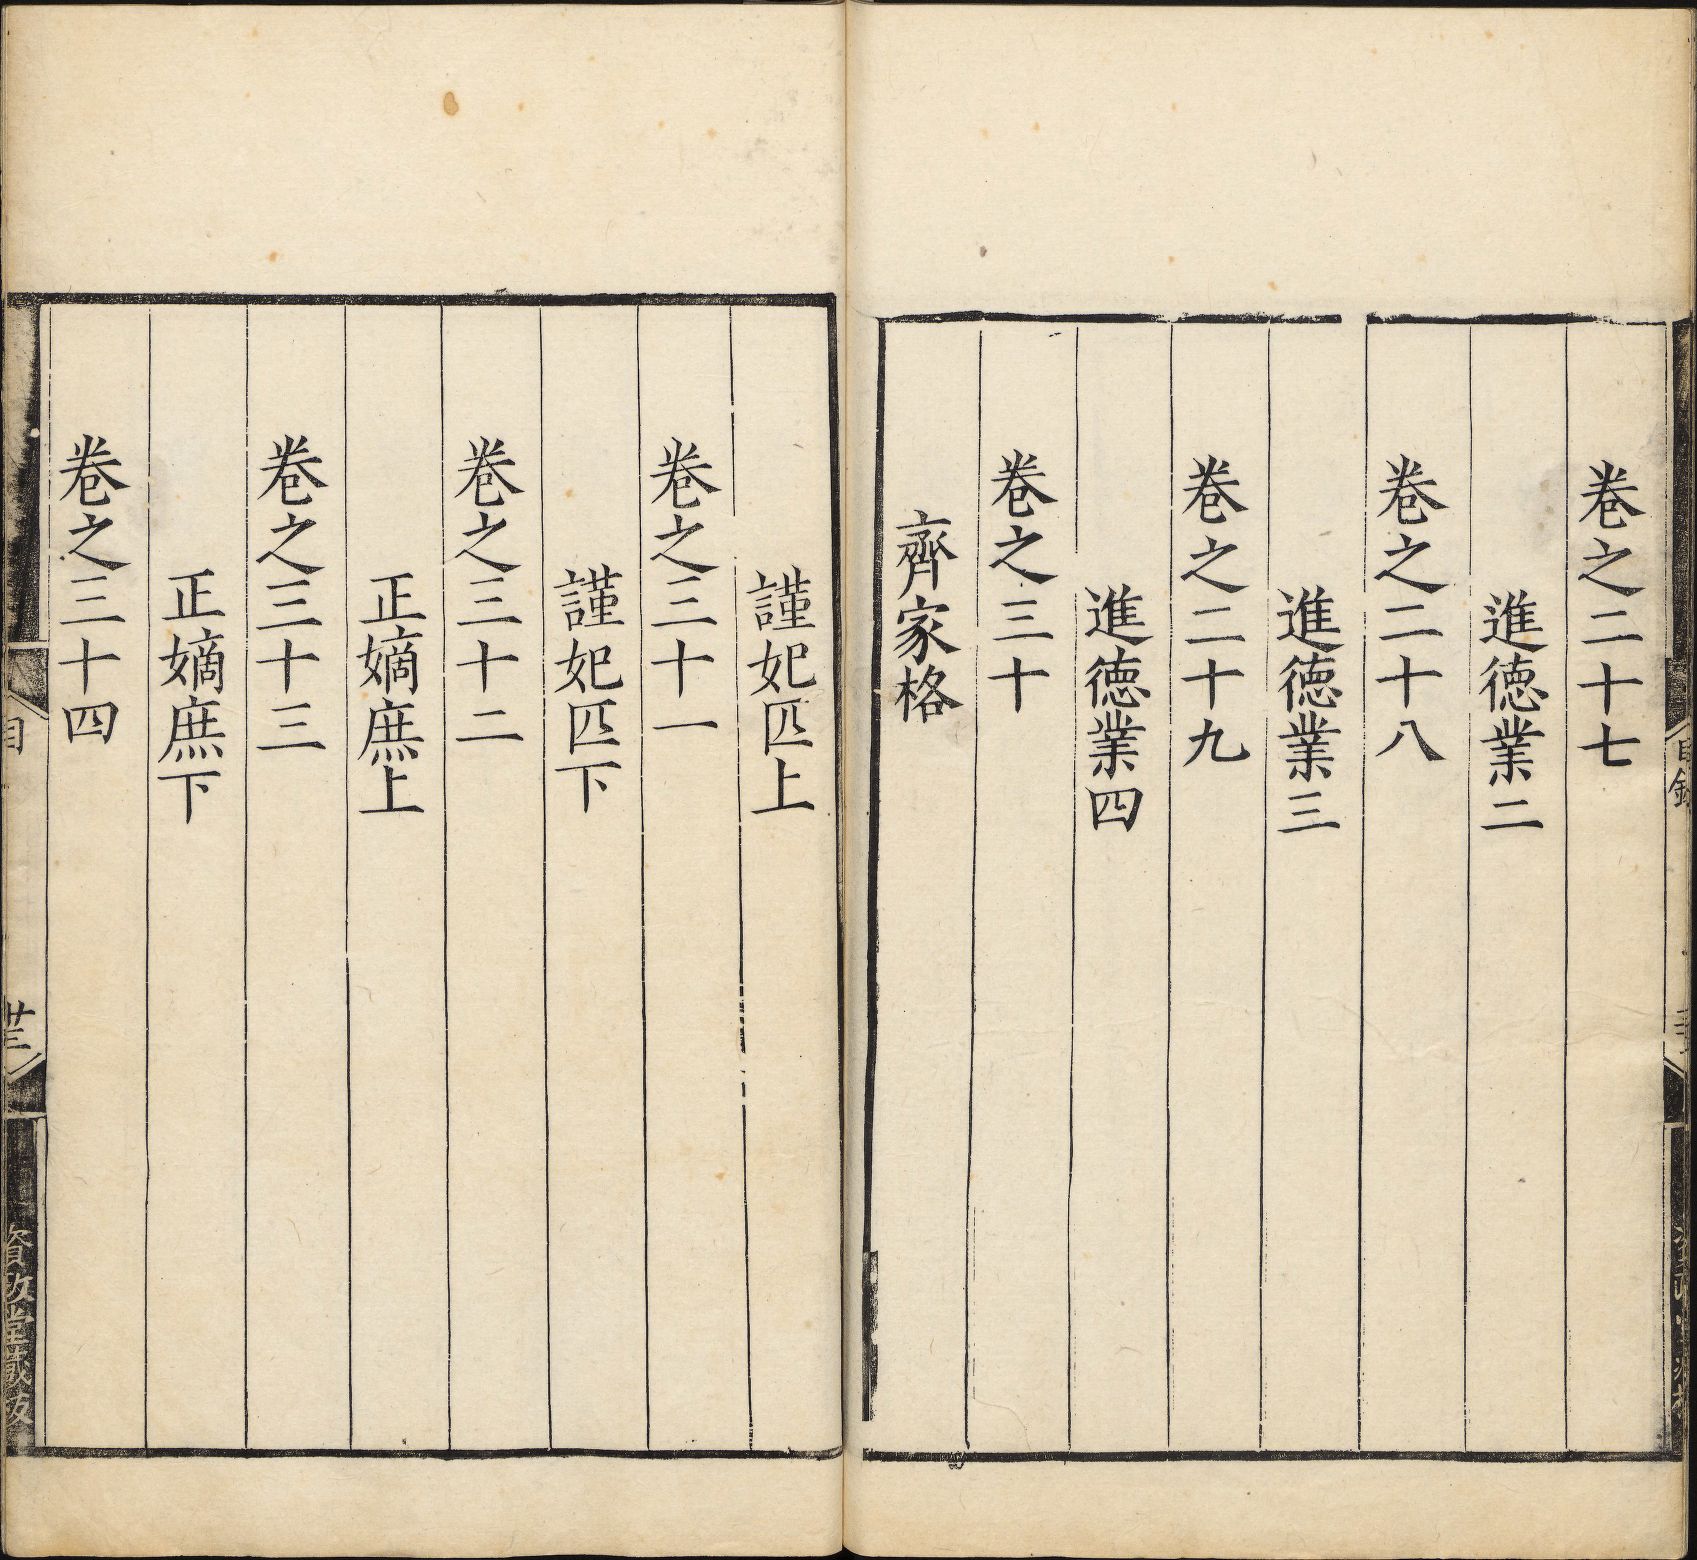 卷之二十七
進德業二
卷之二十八
進德業三
卷之二十九
進德業四
卷之三十
齊家格
謹妃匹上
卷之三十一
謹妃匹下
卷之三十二
正嫡庶上
卷之三十三
正嫡庶下
卷之三十四
目
資政堂藏板